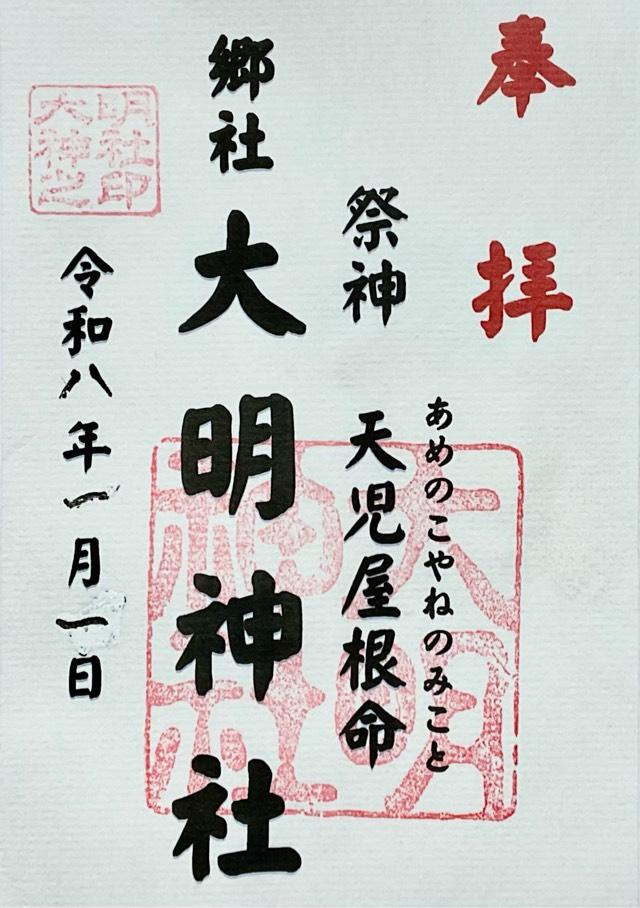 奉拝
あめのこやねのみこと
祭神 天児屋根命
郷社 大明神社
令和八年一月一日
大明神社
明社印大神之